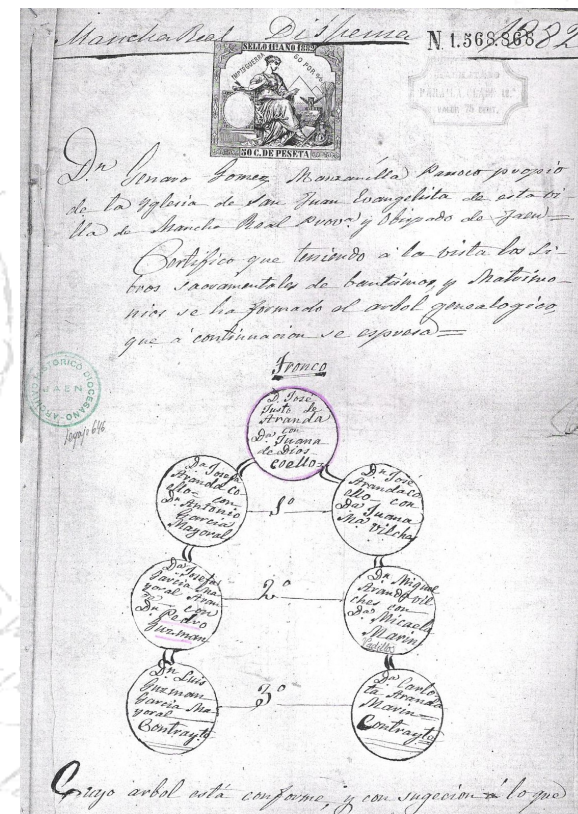 Mancha Real Dispensa 1882
N. 1.568.868
SELLO 11º AÑO 1882
IMPTO GUERRA 50 POR %
50 C. DE PESETA
HABILITADO
PARA LA CLASE 12.ª
VALOR 75 CENT.
Dn Genaro Gomez Manzanilla Parroco propio
de la Yglesia de San Juan Evangelista de esta vi-
lla de Mancha Real Prova. y Obispado de Jaen=
Certifico que teniendo á la vista los Li-
bros sacramentales de bautismos y Matrimo-
nios se ha formado el arbol genealogico,
que á continuacion se espresa=
ARCHIVO HISTORICO DIOCESANO
JAEN
legajo 646
Tronco
D. José
Justo de
Aranda
con
Da. Juana
de Dios
Coello=
Da Josefa
Aranda Co
ello- con
Dn. Antonio
Garcia
Mayoral
1º
Dn José
Aranda Co
ello- con
Da Juana
Ma Vilches
Da Josefa
Garcia Ma
yoral Aran
con
Dn. Pedro
Guzman
2º
Dn Miguel
Aranda Vil
ches con
Da. Micaela
Marin
Padilla
Dn Luis
Guzman
Garcia Ma=
yoral
Contrayte
3º
Da Carlo
ta Aranda
Marin
Contrayte
Cuyo arbol está conforme, y con sugecion á lo que